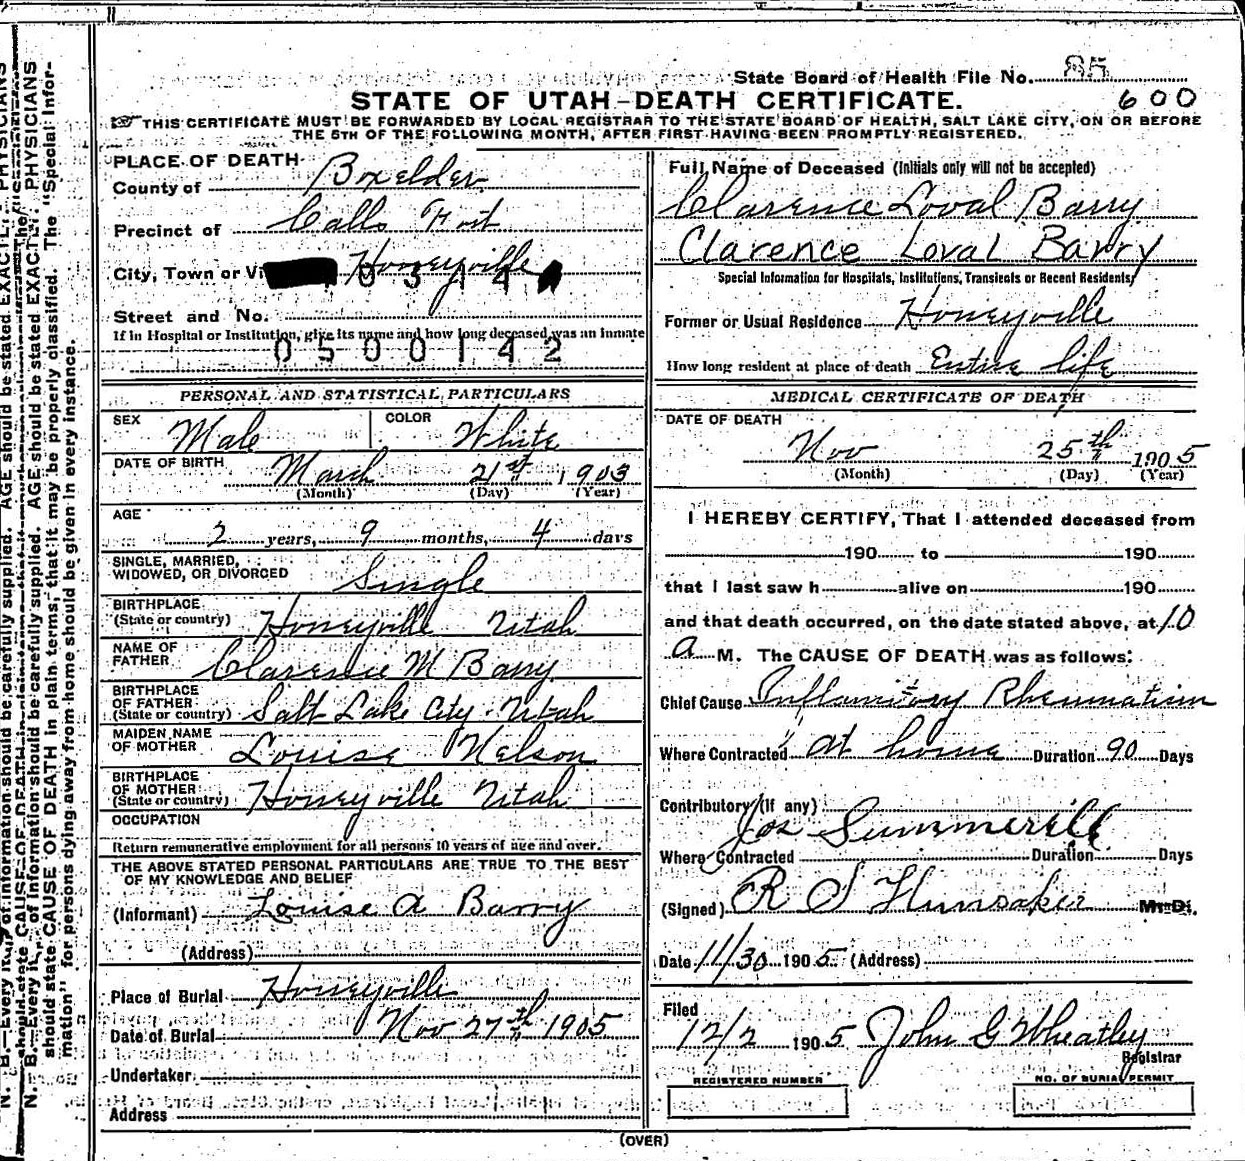 State Board of Health File No. 85
600
STATE OF UTAH-DEATH CERTIFICATE.
THIS CERTIFICATE MUST BE FORWARDED BY LOCAL REGISTRAR TO THE STATE BOARD OF HEALTH, SALT LAKE CITY, ON OR BEFORE
THE 5TH OF THE FOLLOWING MONTH, AFTER FIRST HAVING BEEN PROMPTLY REGISTERED.
PLACE OF DEATH
County of Boxelder
Precinct of Calls Fort
City, Town or Vi Honeyville
0 3 1 4
Street and No.
If in Hospital or Institution, give its name and how long deceased was an inmate
0500142
PERSONAL AND STATISTICAL PARTICULARS
SEX Male COLOR White
DATE OF BIRTH March 21st 1903
(Month) (Day) (Year)
AGE
2 years, 9 months, 4 days
SINGLE, MARRIED,
WIDOWED, OR DIVORCED Single
BIRTHPLACE
(State or country) Honeyville Utah
NAME OF
FATHER Clarence M Barry
BIRTHPLACE
OF FATHER
(State or country) Salt Lake City Utah
MAIDEN NAME
OF MOTHER Louise Nelson
BIRTHPLACE
OF MOTHER
(State or country) Honeyville Utah
OCCUPATION
Return remunerative employment for all persons 10 years of age and over.
THE ABOVE STATED PERSONAL PARTICULARS ARE TRUE TO THE BEST
OF MY KNOWLEDGE AND BELIEF
(Informant) Louise A Barry
(Address)
Place of Burial Honeyville
Date of Burial Nov 27th 1905
Undertaker
Address
Full Name of Deceased (Initials only will not be accepted)
Clarence Loval Barry
Clarence Loval Barry
Special Information for Hospitals, Institutions, Transients or Recent Residents
Former or Usual Residence Honeyville
How long resident at place of death Entire life
MEDICAL CERTIFICATE OF DEATH
DATE OF DEATH
Nov 25th 1905
(Month) (Day) (Year)
I HEREBY CERTIFY, That I attended deceased from
190 to 190
that I last saw h alive on 190
and that death occurred, on the date stated above, at 10
a M. The CAUSE OF DEATH was as follows:
Chief Cause Inflamitory Rheumatism
Where Contracted at home Duration 90 Days
Contributory (If any)
Jos Summerill
Where Contracted Duration Days
(Signed) R S Hunsaker M. D.
Date 11/30 1905 (Address)
Filed
12/2 1905 John G Wheatley
Registrar
REGISTERED NUMBER NO. OF BURIAL PERMIT
(OVER)
N. B.—Every item of information should be carefully supplied. AGE should be stated EXACTLY. PHYSICIANS
should state CAUSE OF DEATH in plain terms, that it may be properly classified. The "Special Infor-
mation" for persons dying away from home should be given in every instance.